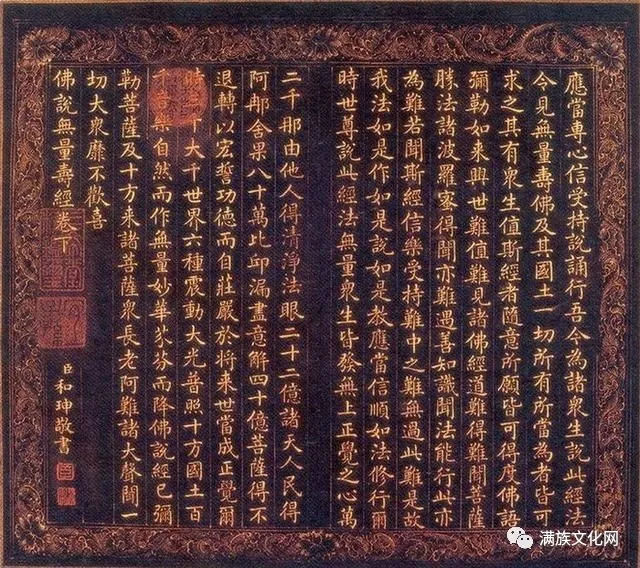 應當專心信受持說誦行吾今為諸衆生說此經法
令見無量壽佛及其國土一切所有所當為者皆可
求之其有衆生值斯經者隨意所願皆可得度佛語
彌勒如来興世難值難見諸佛經道難得難聞菩薩
勝法諸波羅密得聞亦難遇善知識聞法能行此亦
為難若聞斯經信樂受持難中之難無過此難是故
我法如是作如是說如是教應當信順如法修行爾
時世尊說此經法無量衆生皆發無上正覺之心萬
二千那由他人得清淨法眼二十二億諸天人民得
阿那舍果八十萬比邱漏盡意解四十億菩薩得不
退轉以宏誓功德而自莊嚴於将来世當成正覺爾
時三千大千世界六種震動大光普照十方國土百
千音樂自然而作無量妙華芬而降佛說經已彌
勒菩薩及十方来諸菩薩衆長老阿難諸大聲聞一
切大衆靡不歡喜
佛說無量壽經卷下
臣和珅敬書
满族文化网